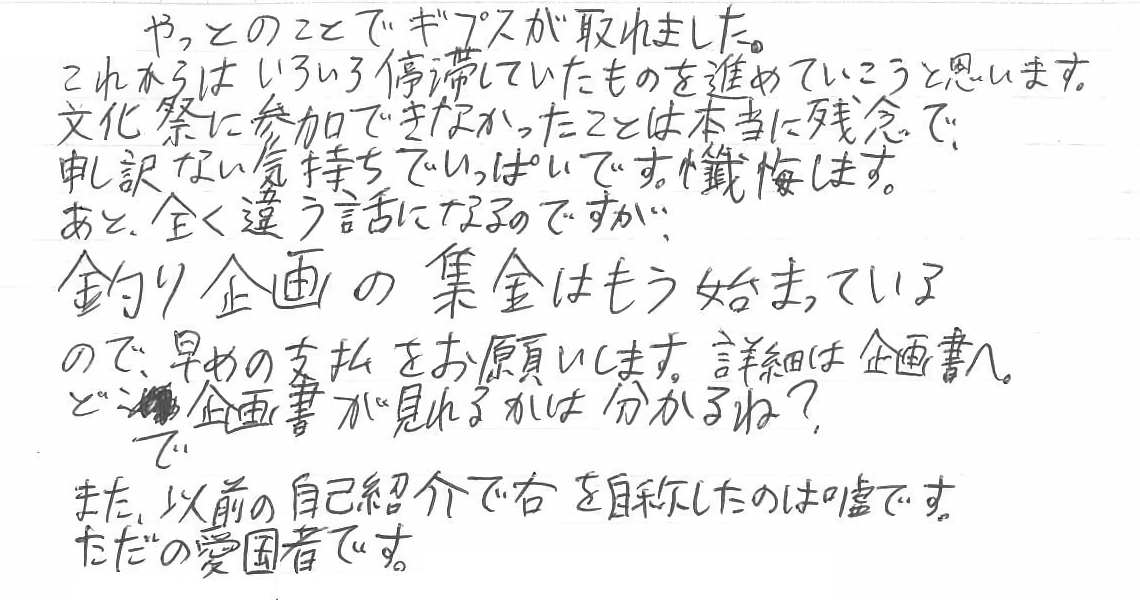 やっとのことでギプスが取れました。
これからはいろいろ停滞していたものを進めていこうと思います。
文化祭に参加できなかったことは本当に残念で、
申し訳ない気持ちでいっぱいです。懺悔します。
あと、全く違う話になるのですが、
釣り企画の集金はもう始まっている
ので、早めの支払をお願いします。詳細は企画書へ。
どこで企画書が見れるかは分かるね？
また、以前の自己紹介で右を自称したのは嘘です。
ただの愛国者です。